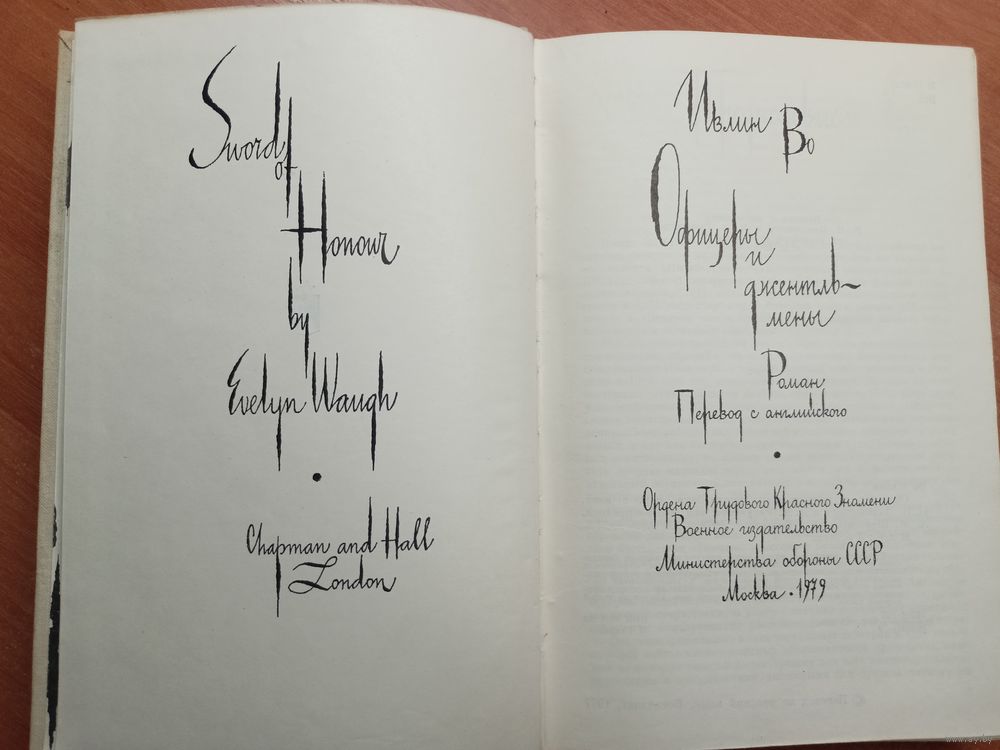 Sword
of
Honour
by
Evelyn Waugh
Chapman and Hall
London
Ивлин Во
Офицеры
и
джентль-
мены
Роман
Перевод с английского
Ордена Трудового Красного Знамени
Военное издательство
Министерства обороны СССР
Москва · 1979
www.ay.by